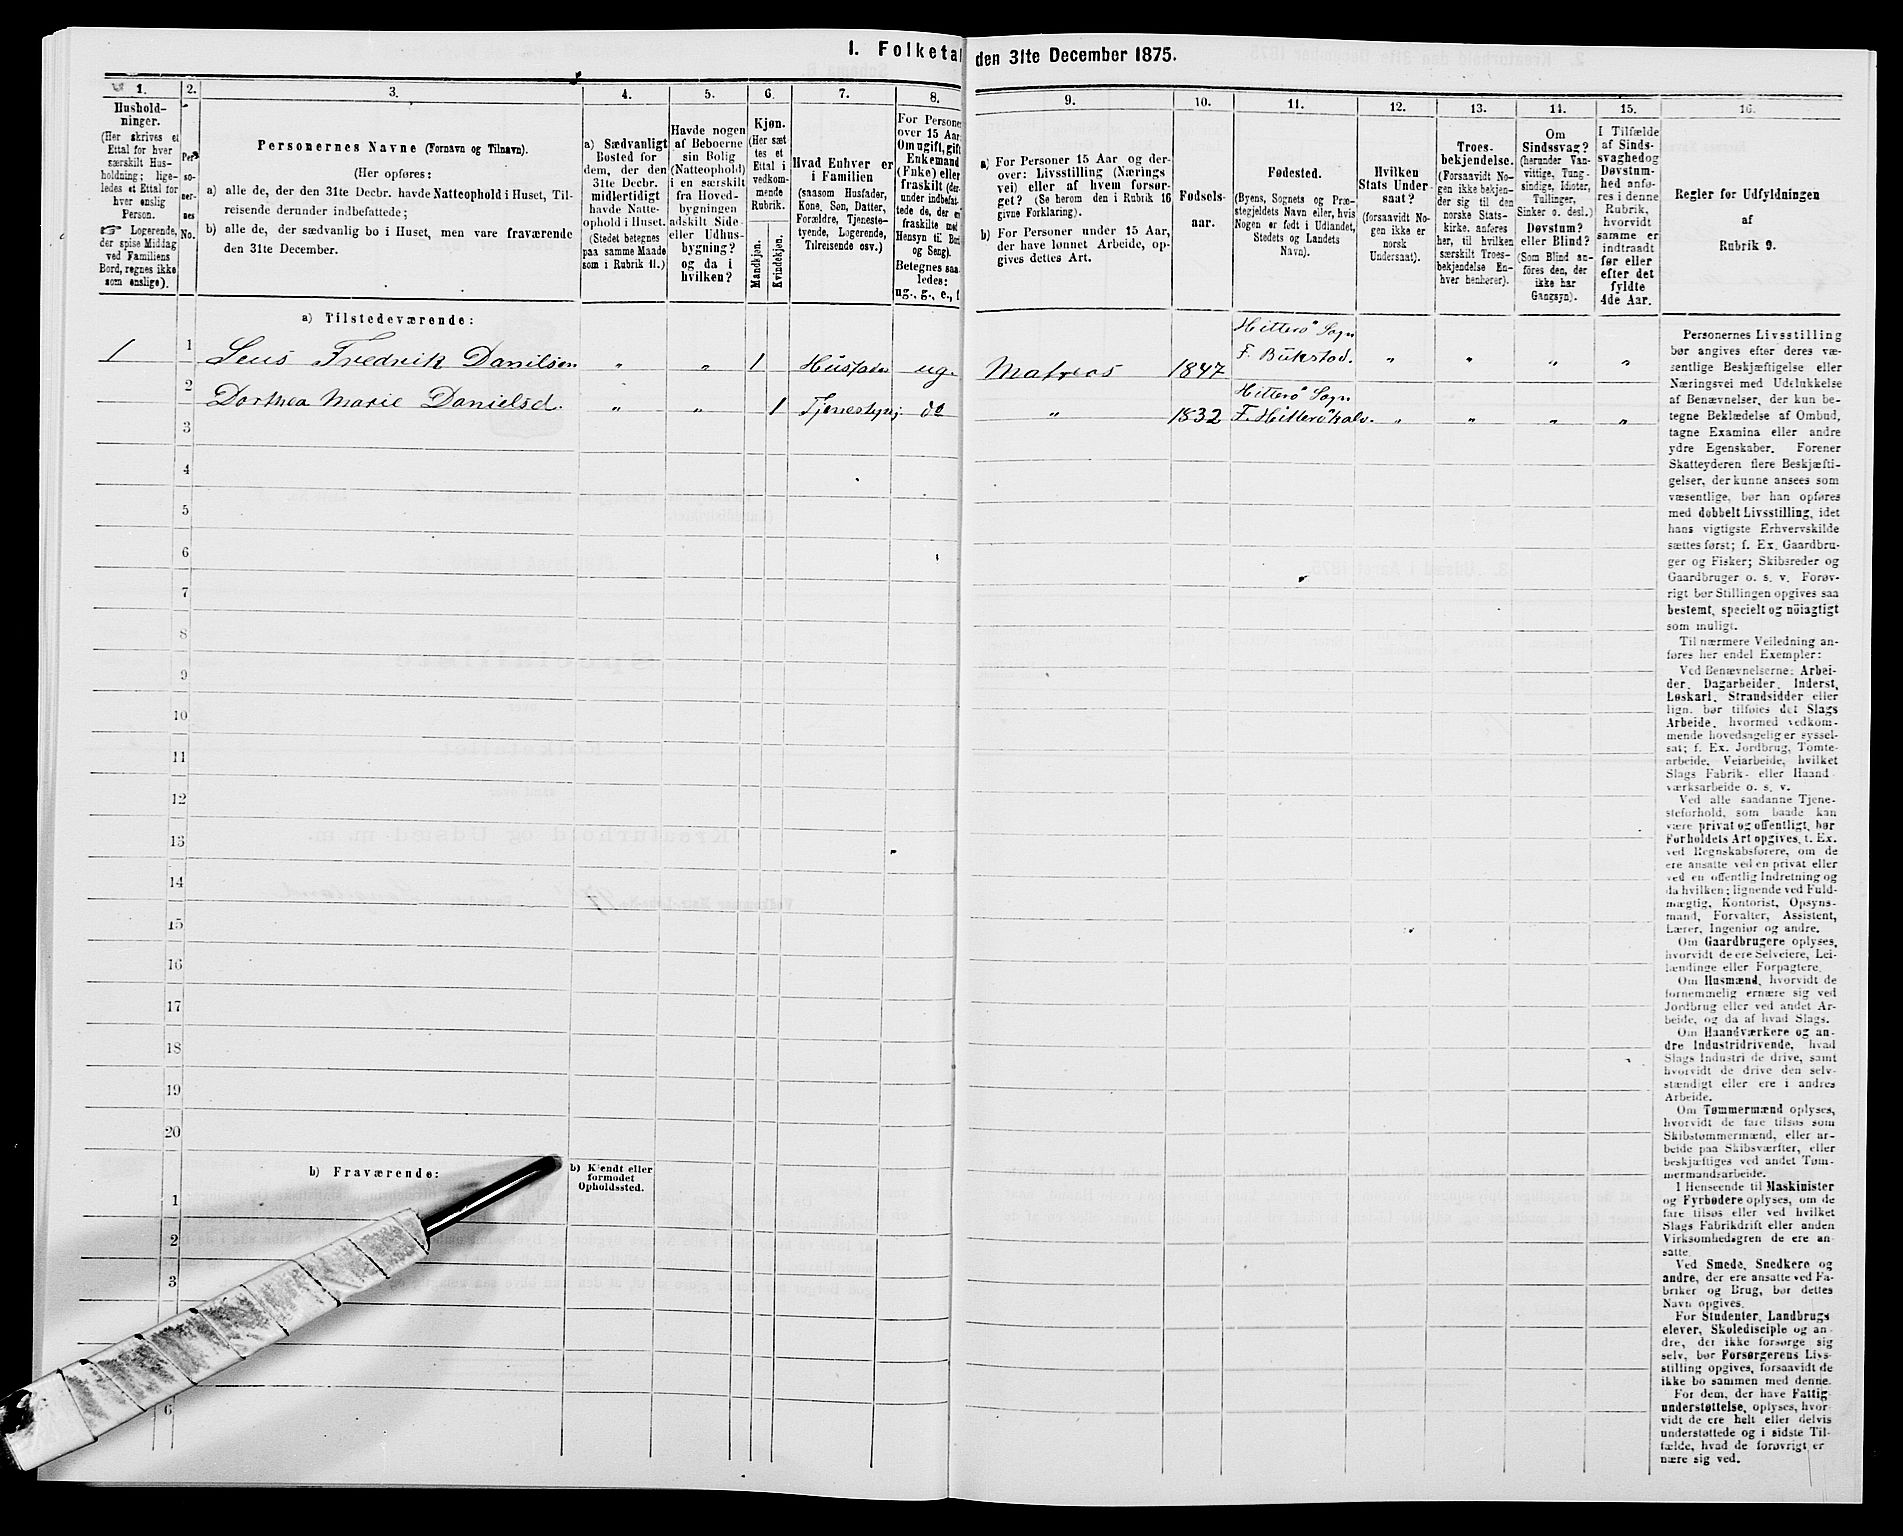 I. Folketal den 31te December 1875.
1.
2.
3.
4.
5.
6.
7.
8.
9.
10.
11.
12.
13.
14.
15.
16.
Hushold-
ninger.
(Her skrives et
Ettal for hver
særskilt Hus-
holdning; lige-
ledes et Ettal for
hver enslig
Person.
☞ Logerende,
der spise Middag
ved Familiens
Bord, regnes ikke
som enslige).
Per-
so-
ner-
nes
No.
Personernes Navne (Fornavn og Tilnavn).
(Her opføres:
a) alle de, der den 31te Decbr. havde Natteophold i Huset, Til-
reisende derunder indbefattede;
b) alle de, der sædvanlig bo i Huset, men vare fraværende
den 31te December.
a) Sædvanligt
Bosted for
dem, der den
31te Decbr.
midlertidigt
havde Natte-
ophold i Huset.
(Stedet betegnes
paa samme Maade
som i Rubrik 11.)
Havde nogen
af Beboerne
sin Bolig
(Natteophold)
i en særskilt
fra Hoved-
bygningen
adskilt Side-
eller Udhus-
bygning?
og da i
hvilken?
Kjøn.
(Her sæt
tes et
Ettal i
vedkom-
mende
Rubrik.
Mandkjøn.
Kvindekjøn.
Hvad Enhver er
i Familien
(saasom Husfader,
Kone, Søn, Datter,
Forældre, Tjeneste-
tyende, Logerende,
Tilreisende osv.)
For Persone
over 15 Aar
Om ugift, gift
Enkemand
(Enke) eller
fraskilt (der-
under indbefat-
tede de, der er
fraskilte med
Hensyn til Bo
og Seng).
Betegnes saa
ledes:
ug., g., e., f
a) For Personer 15 Aar og der-
over: Livsstilling (Nærings
vei) eller af hvem forsør-
get? (Se herom den i Rubrik 16
givne Forklaring).
b) For Personer under 15 Aar,
der have lønnet Arbeide, op-
gives dettes Art.
Fødsels-
aar.
Fødested.
(Byens, Sognets og Præ-
stegjeldets Navn eller, hvis
Nogen er født i Udlandet,
Stedets og Landets
Navn).
Hvilken
Stats Under-
saat?
(forsaavidt No-
gen ikke er
norsk
Undersaat).
Troes-
bekjendelse.
(Forsaavidt No-
gen ikke bekjen-
der sig til den
norske Stats-
kirke, anføres
her, til hvilken
særskilt Troes-
bekjendelse En-
hver henhører).
Om
Sindssvag?
(herunder Van-
vittige, Tung-
sindige, Idioter,
Tullinger,
Sinker o. desl.)
Døvstum?
eller Blind?
(Som Blind an-
føres den, der
ikke har
Gangsyn).
I Tilfælde
af Sinds-
svaghedog
Døvstum-
hed anfø-
res i denne
Rubrik,
hvorvidt
samme er
indtraadt
før eller
efter det
fyldte
4de Aar.
Regler for Udfyldningen
af
Rubrik 9.
a) Tilstedeværende:
1 1 Fredrik Danilsen „ „ 1 Husfader ug. Matros 1847 Hitterö Sogn F. Bukstad. „ „ „ „
2 Dorthea Marie Danielsd. „ „ 1 Tjenestetyn. do „ 1832 Hitterö Sogn F. Hitteröhalv. „ „ „ „
3
4
5
6
7
8
9
10
11
12
13
14
15
16
17
18
19
20
b) Fraværende:
b) Kjendt eller
formodet
Opholdssted.
1
2
3
6
Personernes Livsstilling
bør angives efter deres væ-
sentlige Beskjæftigelse eller
Næringsvei med Udelukkelse
af Benævnelser, der kun be-
tegne Beklædelse af Ombud,
tagne Examina eller andre
ydre Egenskaber. Forener
Skatteyderen flere Beskjæfti-
gelser, der kunne ansees som
væsentlige, bør han opføres
med dobbelt Livsstilling, idet
hans vigtigste Erhvervskilde
sættes først; f. Ex. Gaardbru-
ger og Fisker; Skibsreder og
Gaardbruger o. s. v. Forøv-
rigt bør Stillingen opgives saa
bestemt, specielt og nöiagtigt
som muligt.
Til nærmere Veiledning an-
føres her endel Exempler:
Ved Benævnelserne: Arbei-
der, Dagarbeider, Inderst,
Løskarl, Strandsidder eller
lign. bør tilføies det Slags
Arbeide, hvormed vedkom-
mende hovedsagelig er syssel-
sat; f. Ex. Jordbrug, Tomte-
arbeide, Veiarbeide, hvilket
Slags Fabrik- eller Haand-
værksarbeide o. s. v.
Ved alle saadanne Tjene-
steforhold, som baade kan
være privat og offentligt, bør
Forholdets Art opgives, t. Ex.
ved Regnskabsførere, om de
ere ansatte ved en privat eller
ved en offentlig Indretning og
da hvilken; lignende ved Fuld-
mægtig, Kontorist, Opsyns-
mand, Forvalter, Assistent,
Lærer, Ingeniør og andre.
Om Gaardbrugere oplyses,
hvorvidt de ere Selveiere, Lei-
lændinge eller Forpagtere.
Om Husmænd, hvorvidt de
fornemmelig ernære sig ved
Jordbrug eller ved andet Ar-
beide, og da af hvad Slags.
Om Haandværkere og an-
dre Industridrivende, hvad
Slags Industri de drive, samt
hvorvidt de drive den selv-
stændigt eller ere i andres
Arbeide.
Om Tømmermænd oplyses,
hvorvidt de fare tilsøs som
Skibstømmermænd, eller ar-
beide paa Skibsværfter, eller
beskjæftiges ved andet Tøm-
mermandsarbeide.
I Henseende til Maskinister
og Fyrbødere oplyses, om de
fare tilsøs eller ved hvilket
Slags Fabrikdrift eller anden
Virksomhedsgren de ere an-
satte.
Ved Smede, Snedkere og
andre, der ere ansatte ved Fa-
briker og Brug, bør dettes
Navn opgives.
For Studenter, Landbrugs
elever, Skoledisciple og an-
dre, der ikke forsørge sig
selv, bør Forsørgerens Livs-
stilling opgives, forsaavidt de
ikke bo sammen med denne.
For dem, der have Fattig-
understøttelse, oplyses, hvor-
vidt de ere helt eller delvis
understøttede og i sidste Til-
fælde, hvad de forøvrigt er
nære sig ved.